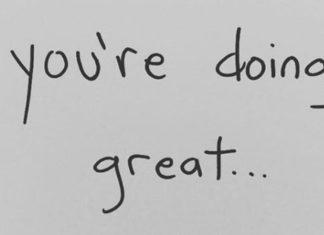 you're doing
great...